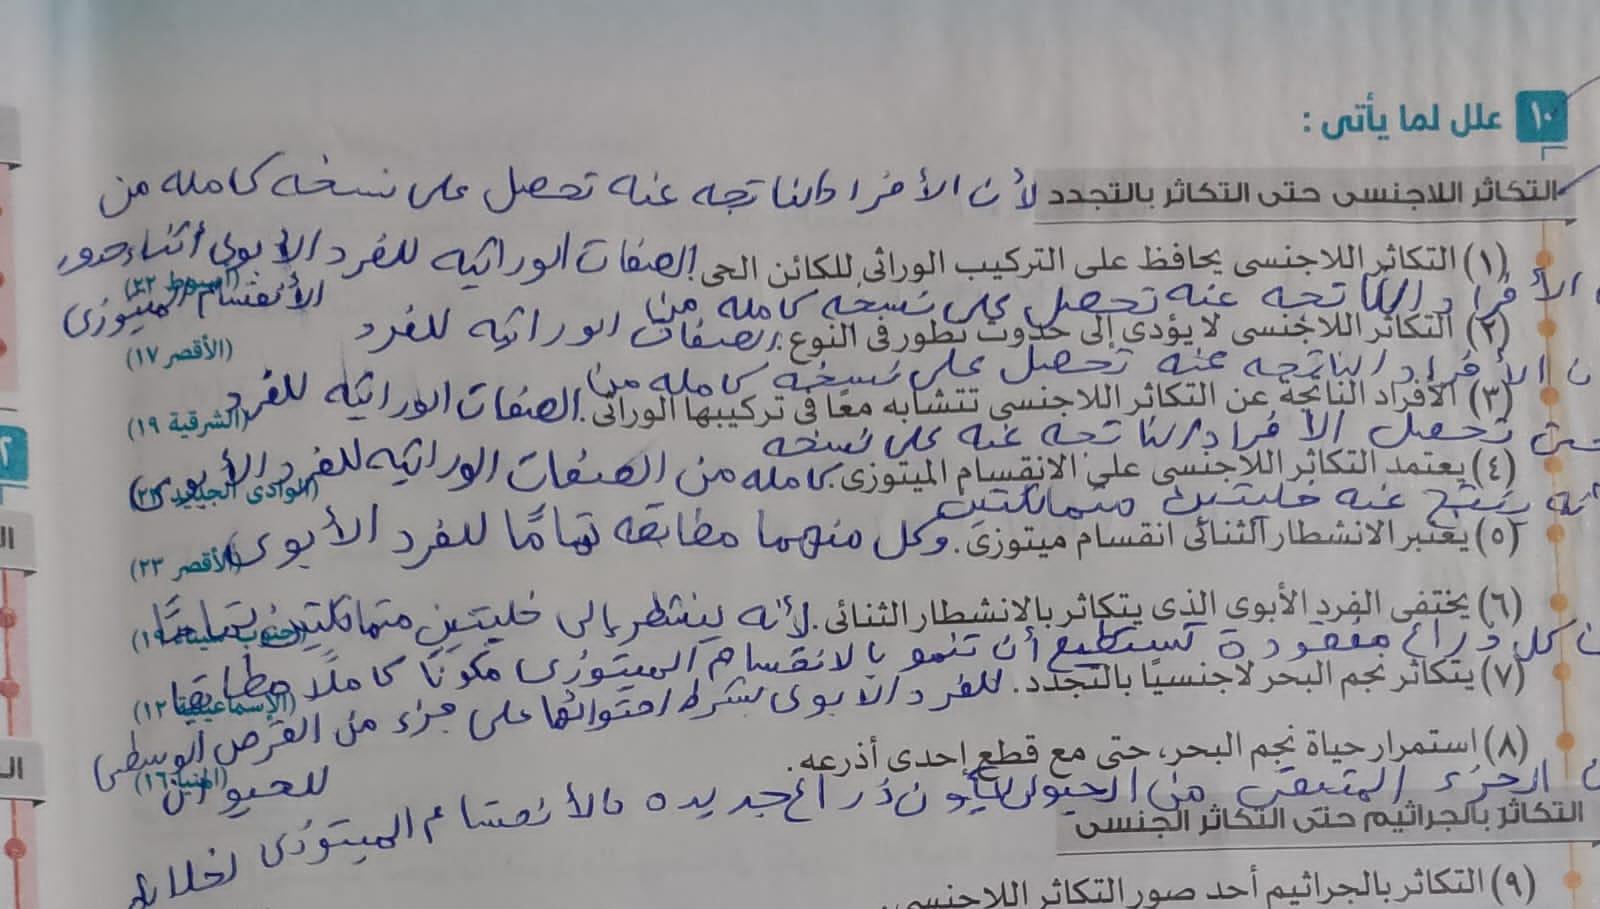 ١٠ علل لما يأتى :
التكاثر اللاجنسى حتى التكاثر بالتجدد لأن الأفراد الناتجه عنه تحصل على نسخه كامله من
(١) التكاثر اللاجنسى يحافظ على التركيب الوراثى للكائن الحى. الصفات الوراثيه للفرد الابوى أثناء حدور
الأنقسام الميتوزى (أسيوط ٢٢)
الأفراد الناتجه عنه تحصل على نسخه كامله من
(٢) التكاثر اللاجنسى لا يؤدى إلى حدوث تطور فى النوع. الصفات الوراثيه للفرد (الأقصر ١٧)
ن الأفراد الناتجه عنه تحصل على نسخه كامله من
(٣) الأفراد الناتجة عن التكاثر اللاجنسى تتشابه معًا فى تركيبها الوراثى. الصفات الوراثيه للفرد (الشرقية ١٩)
تحصل الأفراد الناتجه عنه على نسخه
(٤) يعتمد التكاثر اللاجنسى على الانقسام الميتوزى. كامله من الصفات الوراثيه للفرد الأبوى (الوادى الجديد ٢٣)
ينتج عنه خليتين متماثلتين
(٥) يعتبر الانشطار الثنائى انقسام ميتوزى. وكل منهما مطابقه تمامًا للفرد الأبوى (الأقصر ٢٣)
(٦) يختفى الفرد الأبوى الذى يتكاثر بالانشطار الثنائى. لأنه ينشطر إلى خليتين متماثلتين تمامًا
كل ذراع مفقودة تستطيع أن تنمو بالانقسام الميتوزى مكونًا كاملًا مطابقا
(٧) يتكاثر نجم البحر لاجنسيًا بالتجدد. للفرد الابوى بشرط احتوائها على جزء من القرص الوسطى (الإسماعيلية ١٢)
(٨) استمرار حياة نجم البحر، حتى مع قطع إحدى أذرعه. للحيوان (المنيا ١٦)
الجزء المتبقى من الحيوان يكون ذراع جديده بالأنقسام الميتوزى لخلايا
التكاثر بالجراثيم حتى التكاثر الجنسى
(٩) التكاثر بالجراثيم أحد صور التكاثر اللاجنسى.